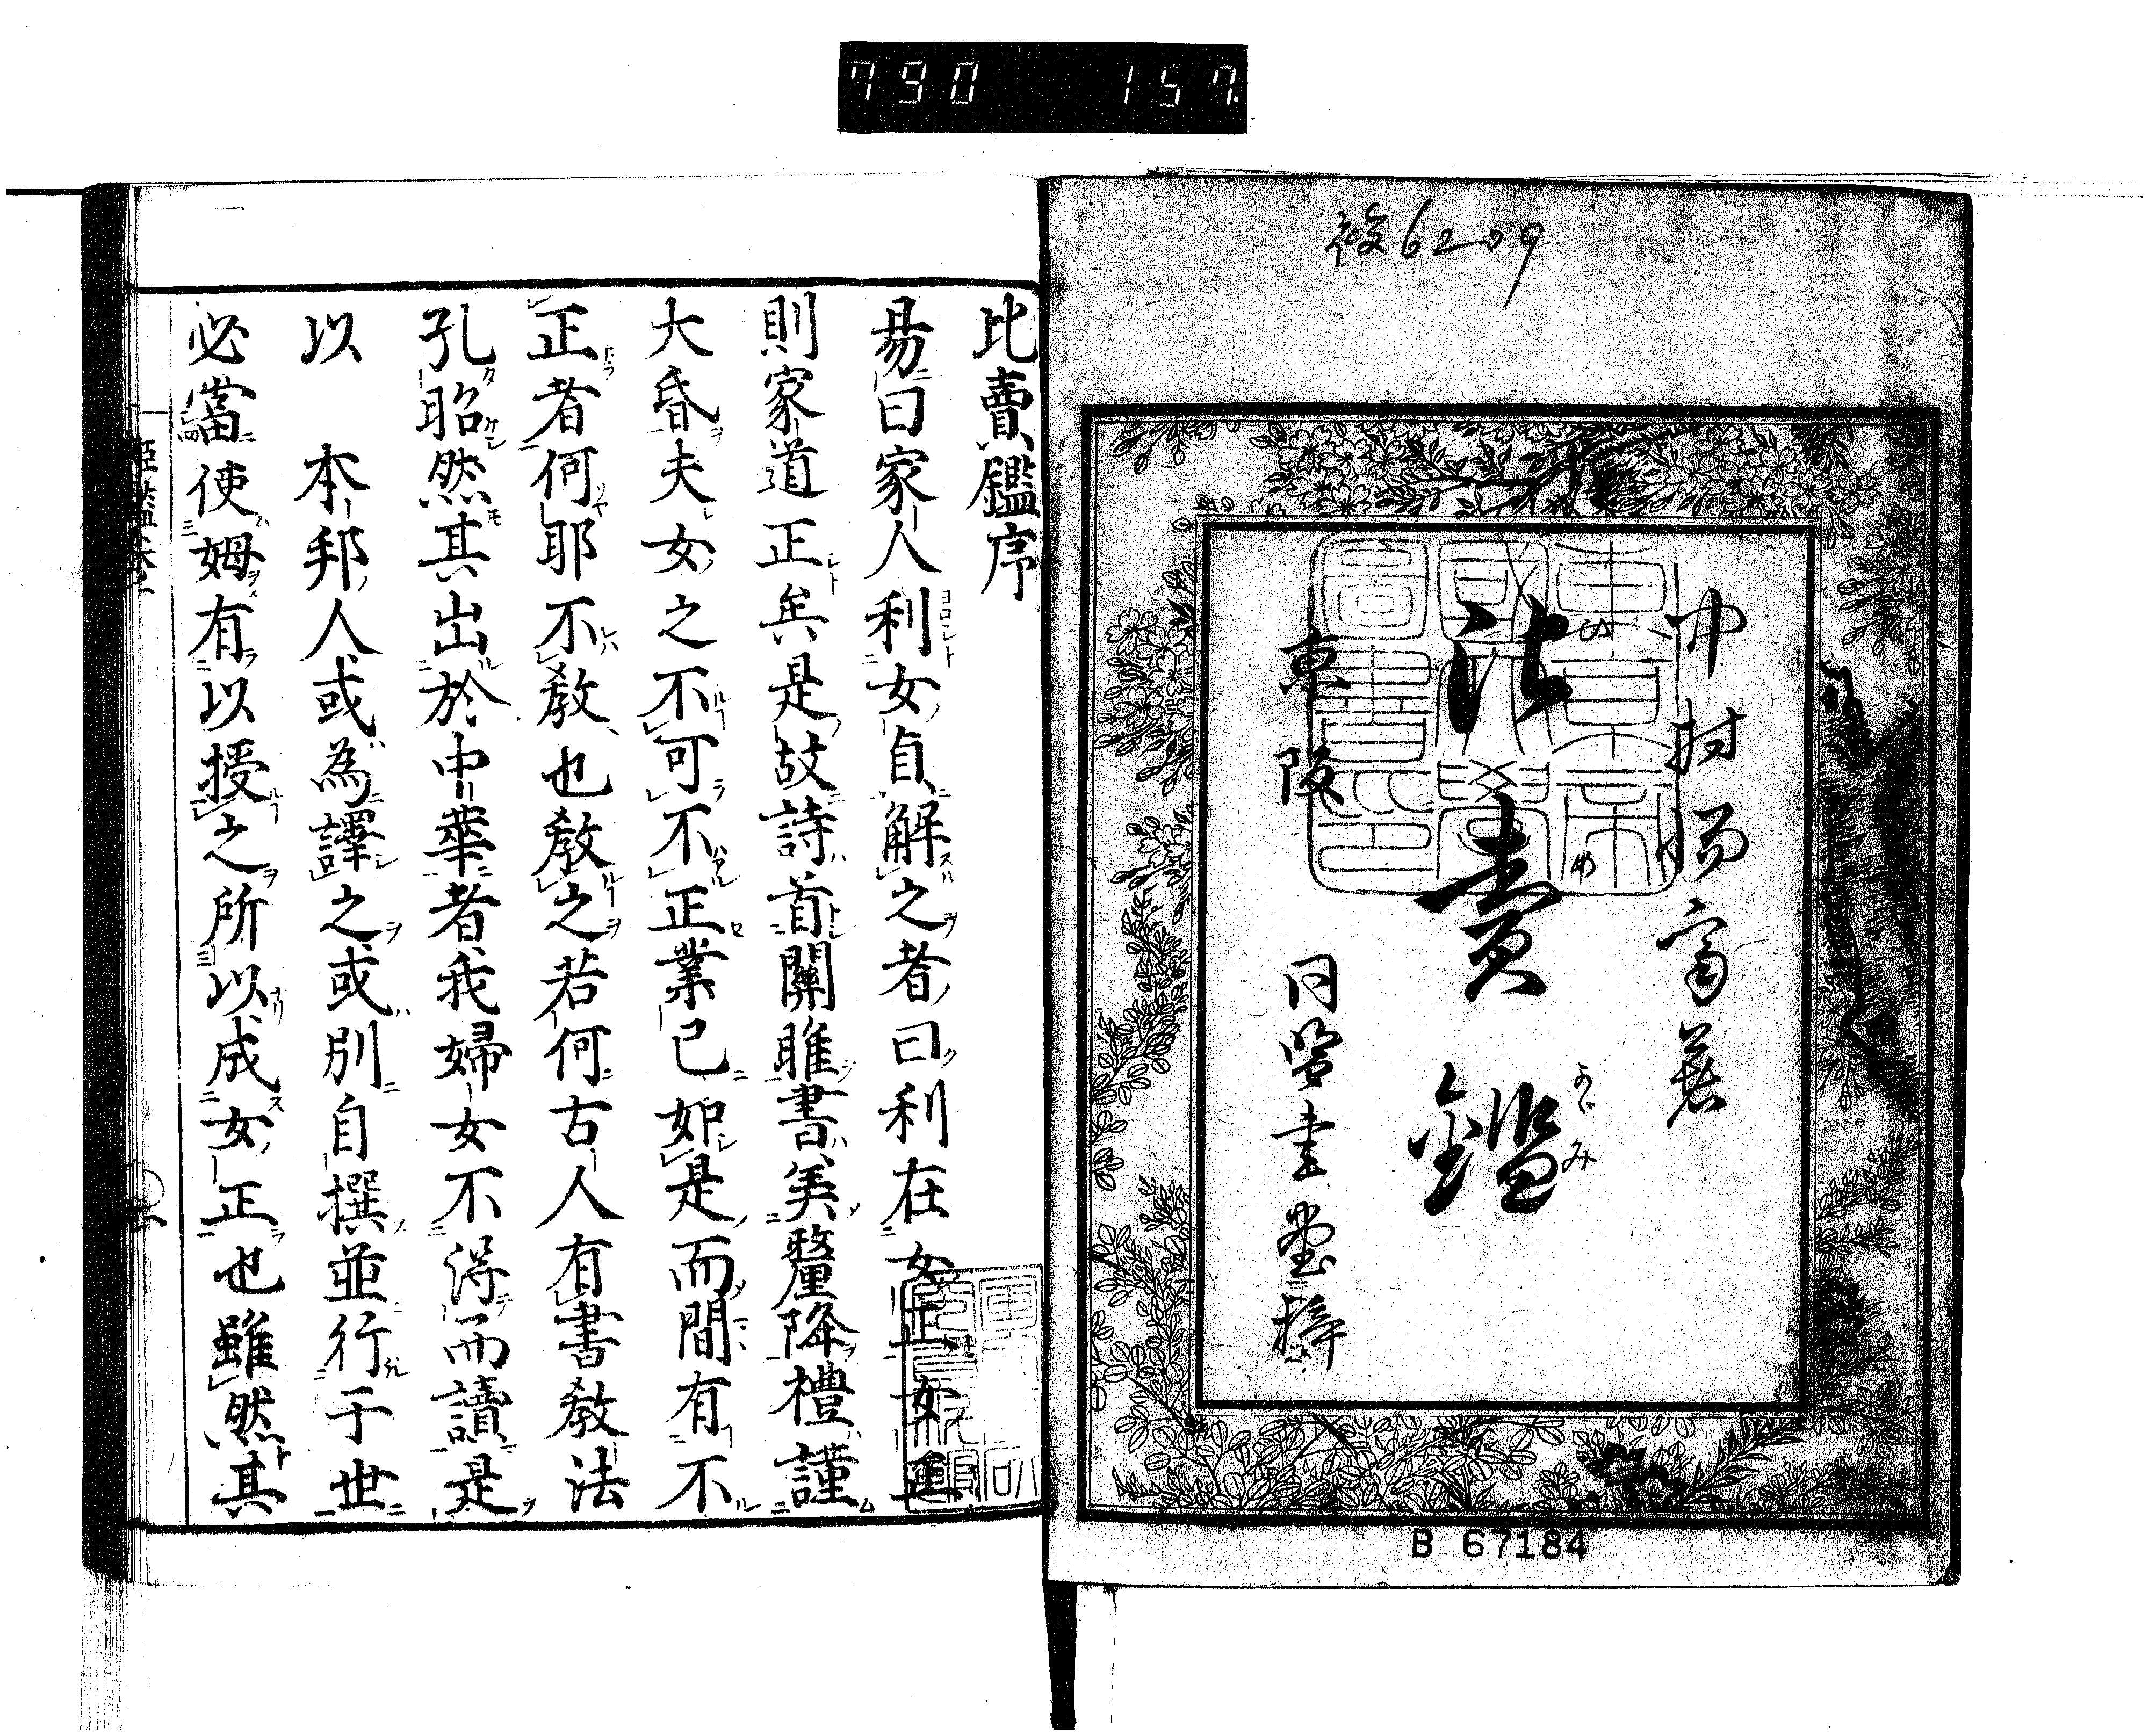 790 157.
後6209
中村惕斎著
比賣鑑
ひめかゞみ
東阪 同盟書堂梓
東京帝國大學圖書印
B 67184
比賣鑑序
易曰家人利女貞解之者曰利在女正女正
則家道正矣是故詩首關雎書美釐降禮謹
大昏夫女之不可不正業已如是而間有不
正者何耶不教也教之若何古人有書教法
孔昭然其出於中華者我婦女不得而讀是
以 本邦人或為譯之或別自撰並行于世
必當使姆有以授之所以成女正也雖然其